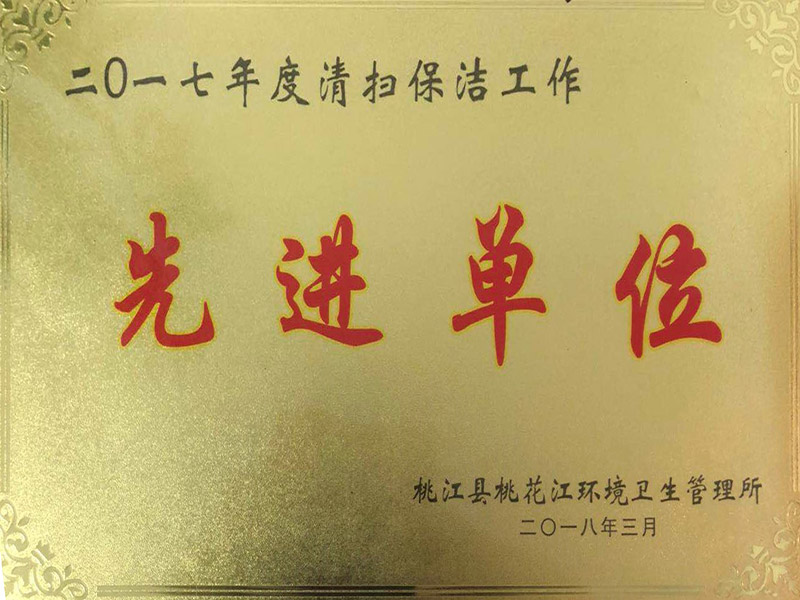 二〇一七年度清扫保洁工作
先进单位
桃江县桃花江环境卫生管理所
二〇一八年三月